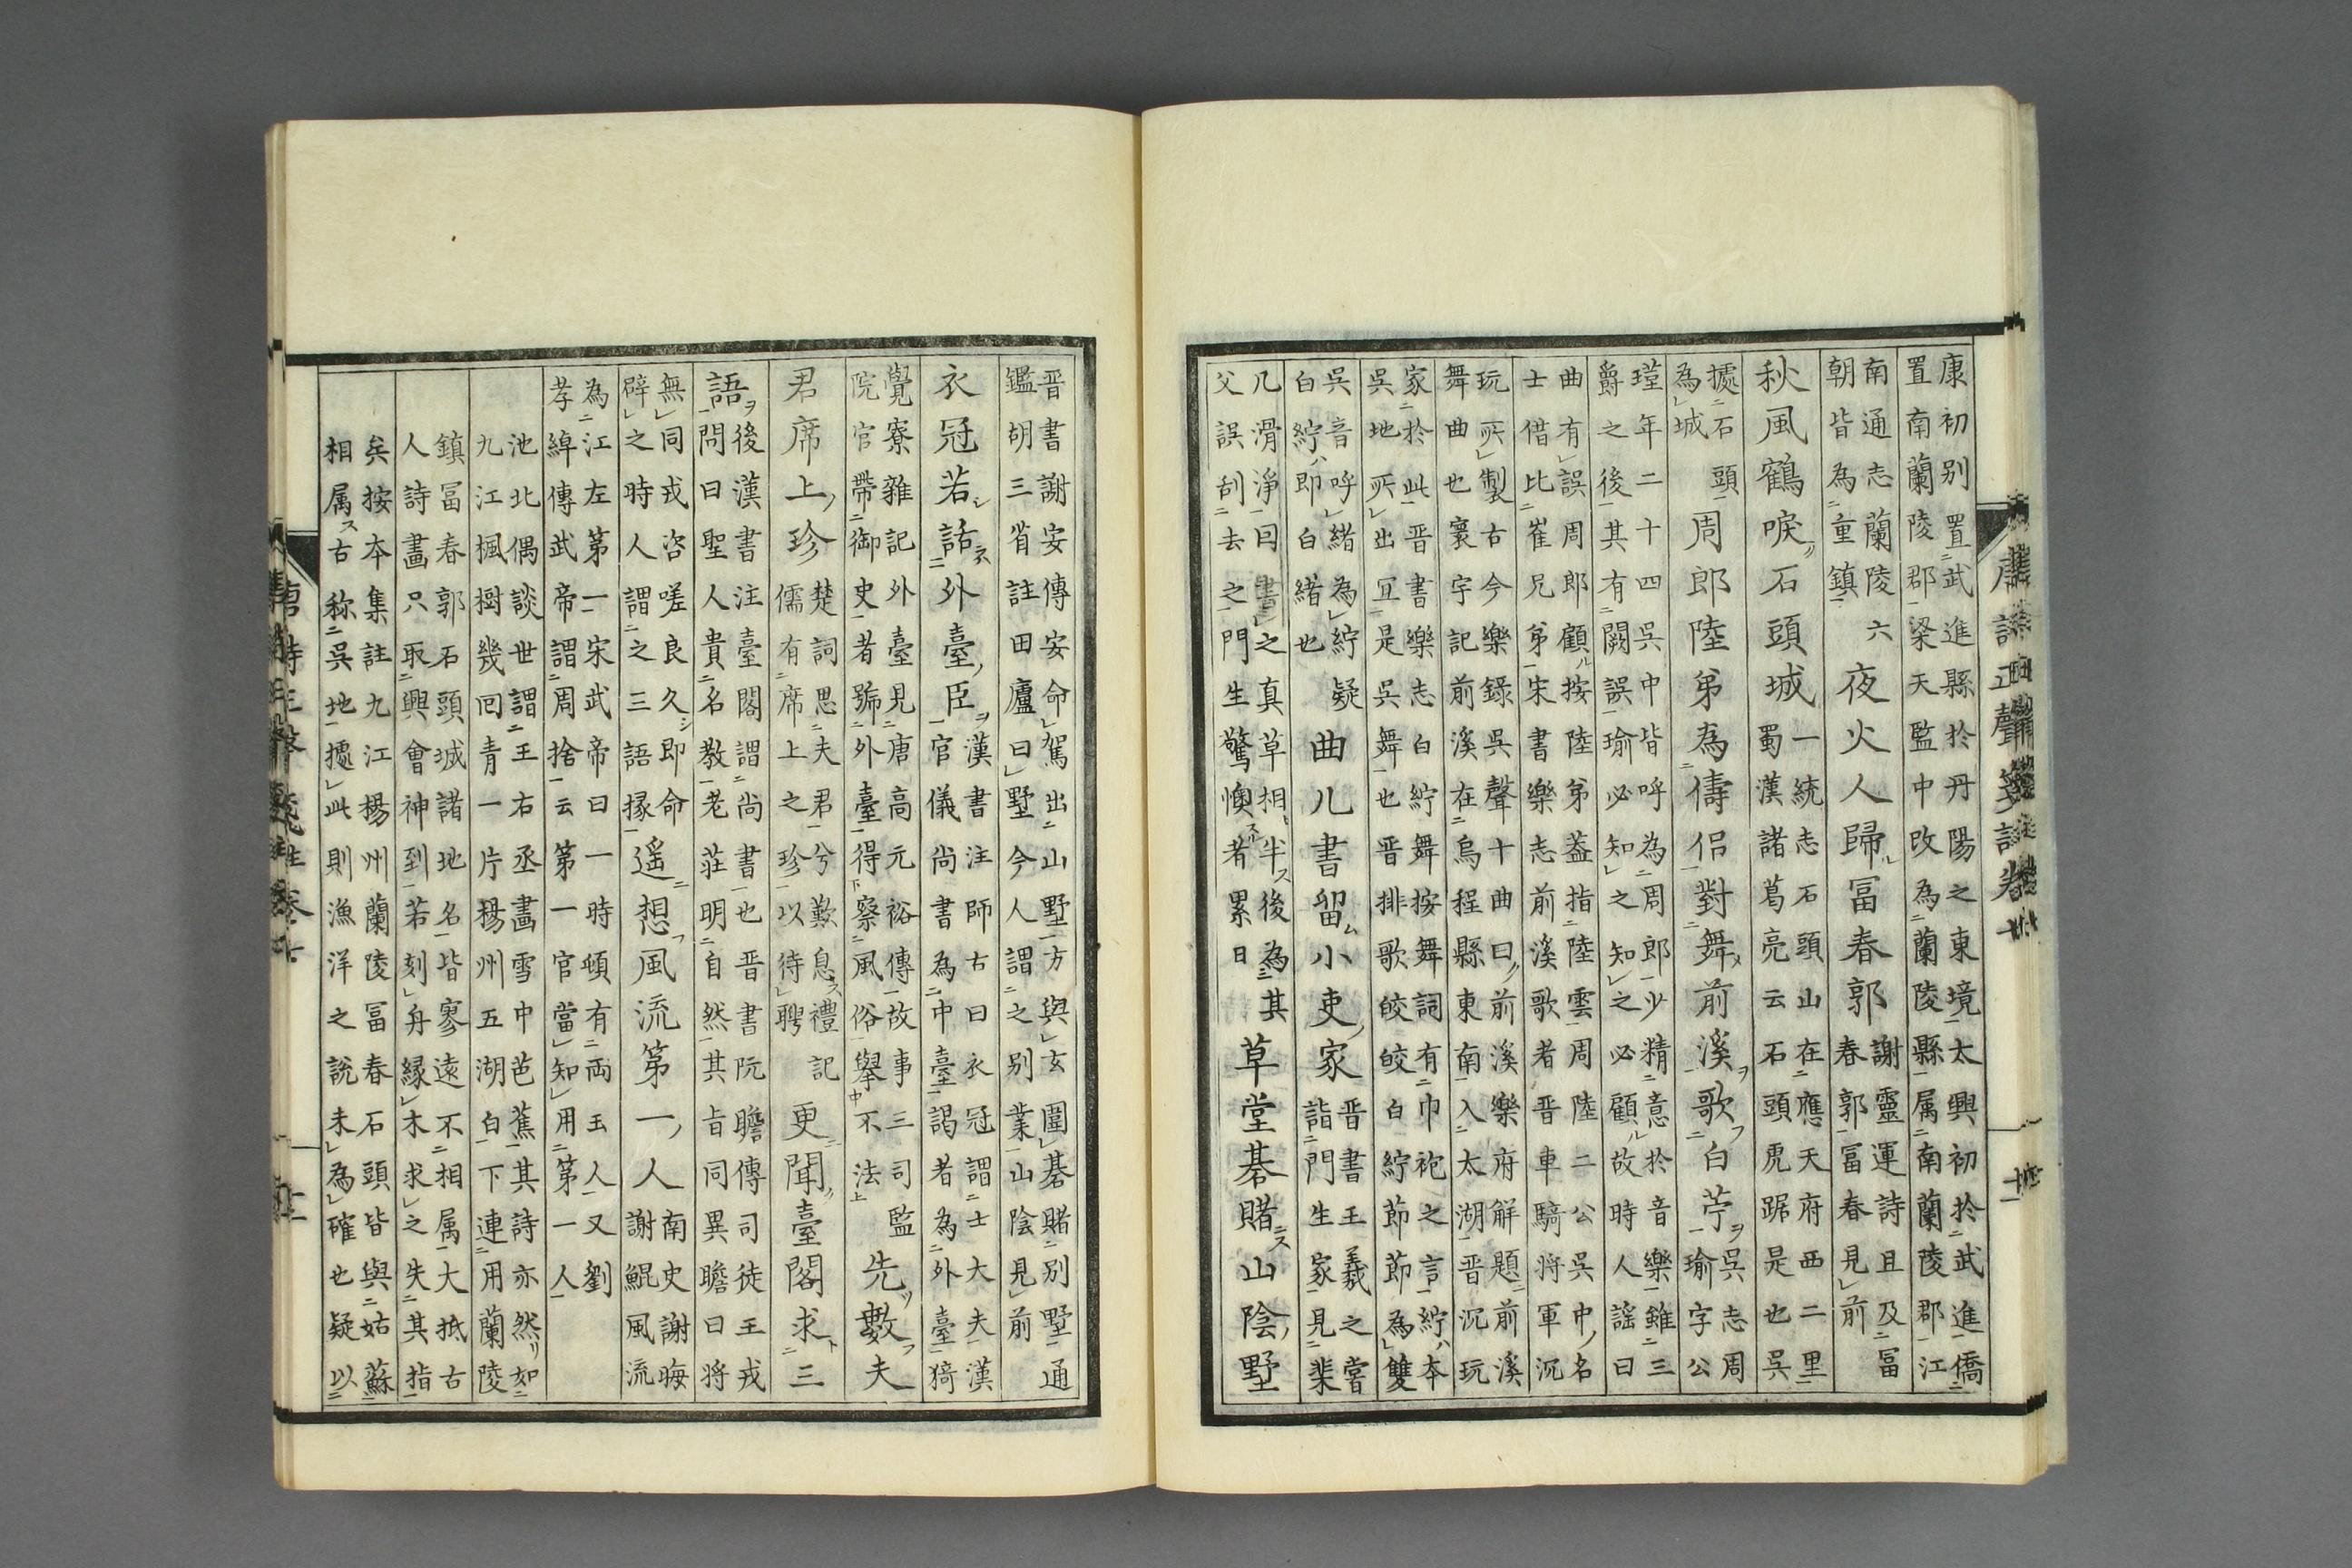 康初别置武進縣於丹陽之東境太興初於武進僑
置南蘭陵郡梁天監中改為蘭陵縣属南蘭陵郡江
南通志蘭陵六
朝皆為重鎮
夜火人歸冨春郭
謝靈運詩且及冨
春郭冨春見前
秋風鶴唳石頭城
一統志石頭山在應天府西二里
蜀漢諸葛亮云石頭虎踞是也吳
據石頭
為城
周郎陸弟為儔侶對舞前溪歌白苧
吳志周
瑜字公
瑾年二十四吳中皆呼為周郎少精意於音樂雖三
爵之後其有闕誤瑜必知之知之必顧故時人謡曰
曲有誤周郎顧按陸弟葢指陸雲周陸二公吳中名
士借比崔兄弟宋書樂志前溪歌者晋車騎將軍沉
玩所製古今樂錄吳聲十曲曰前溪樂府解題前溪
舞曲也寰宇記前溪在烏程縣東南入太湖晋沉玩
家於此晋書樂志白紵舞按舞詞有巾袍之言紵本
吳地所出冝是吳舞也晋排歌皎皎白紵節節為雙
吳音呼緒為紵疑
白紵即白緒也
曲几書留小吏家
晋書王羲之嘗
詣門生家見棐
几滑淨囙書之真草相半後為其
父誤刮去之門生驚懊者累日
草堂棊賭山陰墅
晋書謝安傳安命駕出山墅方與玄圍棊賭别墅通
鑑胡三省註田廬曰墅今人謂之别業山陰見前
衣冠若話外臺臣
漢書注師古曰衣冠謂士大夫漢
官儀尚書為中臺謁者為外臺猗
覺寮雜記外臺見唐高元裕傳故事三司監
院官帶御史者號外臺得察風俗舉不法
先數夫
君席上珍
楚詞思夫君兮歎息禮記
儒有席上之珍以待聘
更聞臺閣求三
語
後漢書注臺閣謂尚書也晋書阮瞻傳司徒王戎
問曰聖人貴名教老荘明自然其旨同異瞻曰将
無同戎咨嗟良久即命
辟之時人謂之三語掾
遥想風流第一人
南史謝晦
謝鯤風流
為江左第一宋武帝曰一時頓有两玉人又劉
孝綽傳武帝謂周捨云第一官當知用第一人
池北偶談世謂王右丞畫雪中芭蕉其詩亦然如
九江楓樹幾回青一片楊州五湖白下連用蘭陵
鎮冨春郭石頭城諸地名皆寥遠不相属大抵古
人詩畫只取興會神到若刻舟縁木求之失其指
矣按本集註九江楊州蘭陵冨春石頭皆與姑蘇
相属古称吳地據此則漁洋之說未為確也疑以